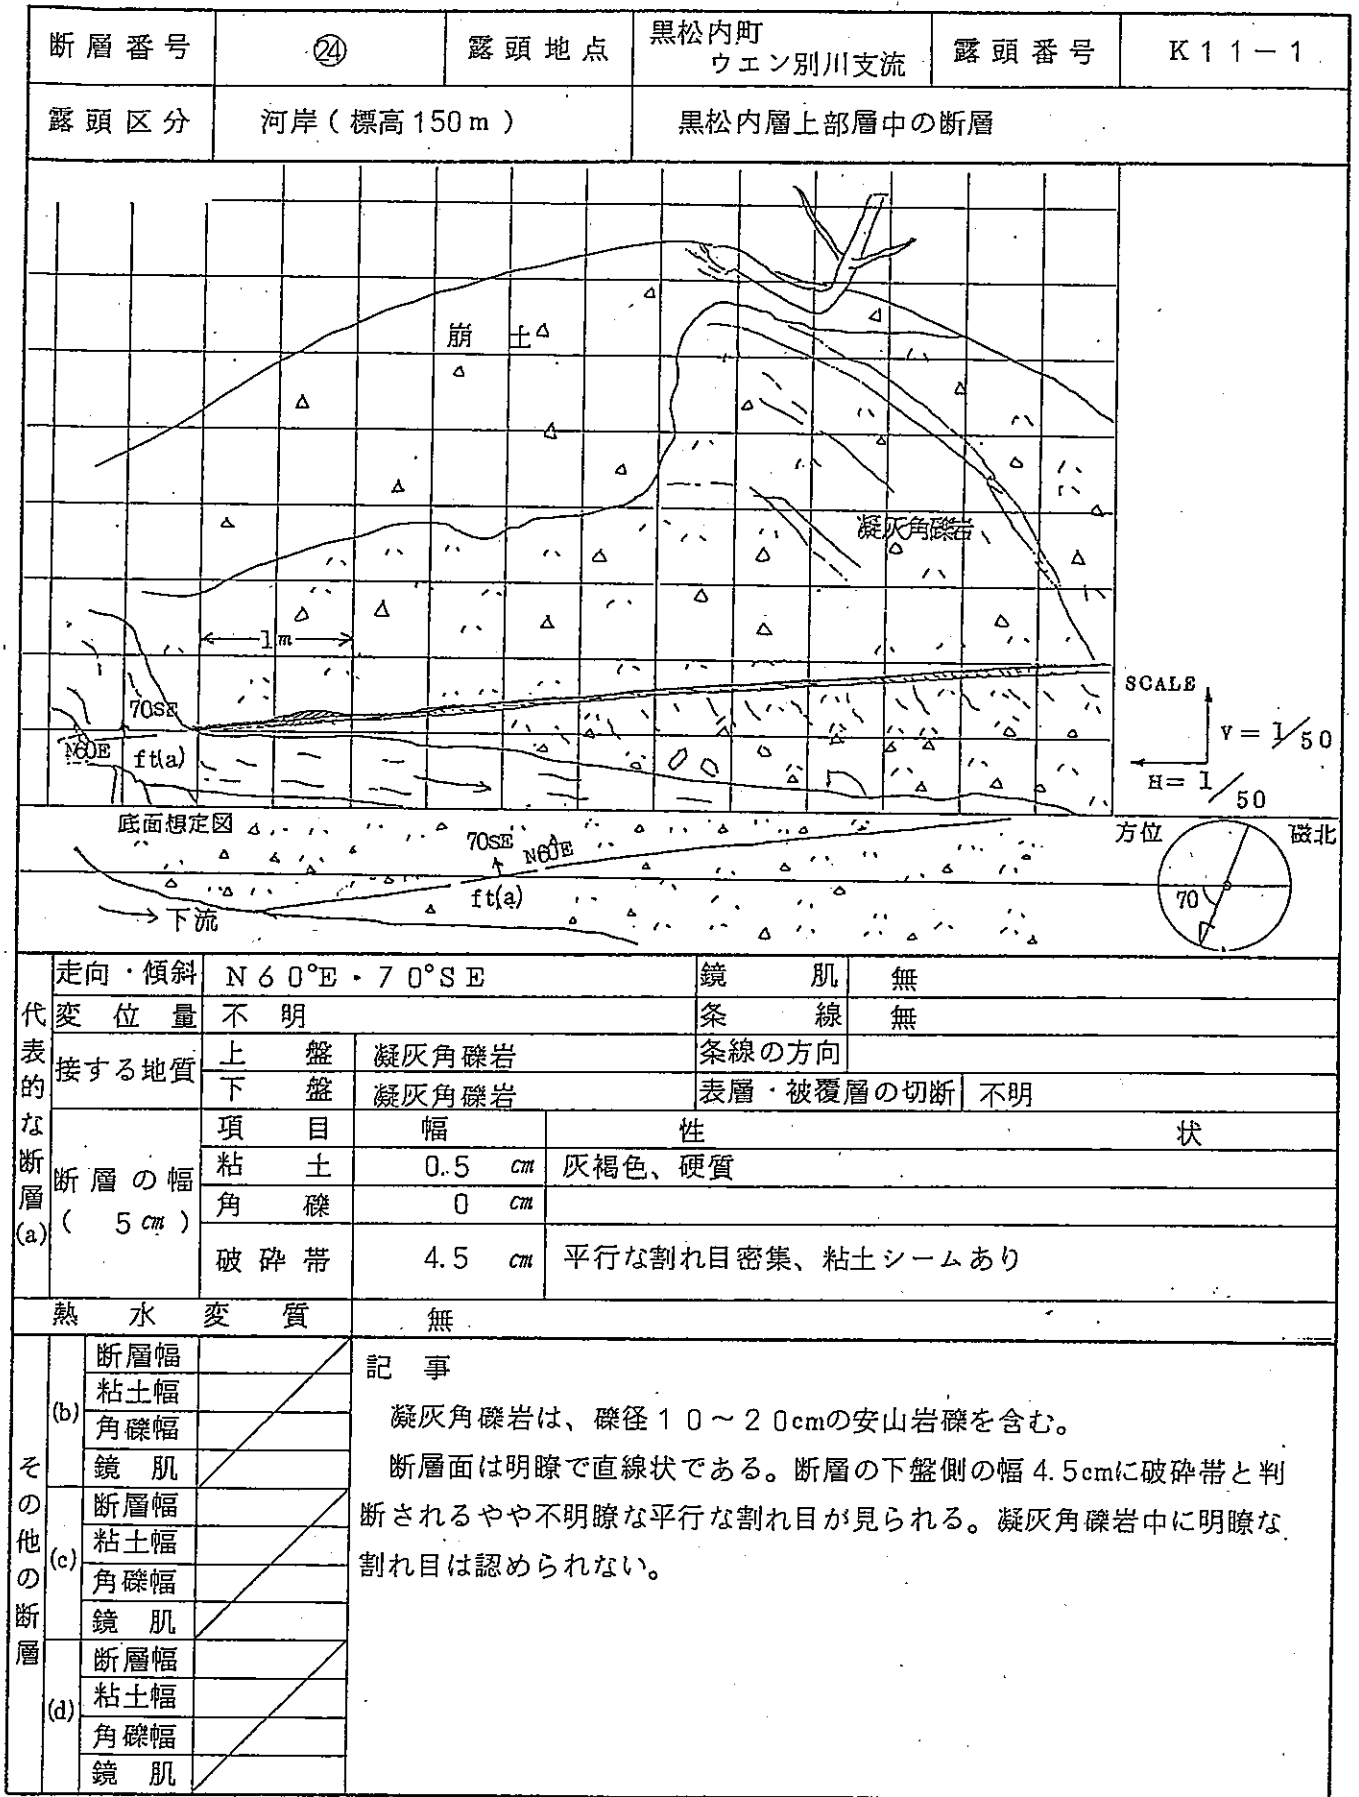 断層番号 ㉔ 露頭地点 黒松内町 ウエン別川支流 露頭番号 K11－1
露頭区分 河岸(標高150m) 黒松内層上部層中の断層
崩土
凝灰角礫岩
1m
70SE
N60E ft(a)
SCALE
V=1/50
H=1/50
底面想定図
70SE N60E
ft(a)
→下流
方位 磁北
70
代表的な断層(a)
走向・傾斜 N60°E・70°SE 鏡肌 無
変位量 不明 条線 無
接する地質 上盤 凝灰角礫岩 条線の方向
下盤 凝灰角礫岩 表層・被覆層の切断 不明
断層の幅 (5cm) 項目 幅 性状
粘土 0.5 cm 灰褐色、硬質
角礫 0 cm
破砕帯 4.5 cm 平行な割れ目密集、粘土シームあり
熱水変質 無
その他の断層
(b) 断層幅
粘土幅
角礫幅
鏡肌
(c) 断層幅
粘土幅
角礫幅
鏡肌
(d) 断層幅
粘土幅
角礫幅
鏡肌
記事
凝灰角礫岩は、礫径10～20cmの安山岩礫を含む。
断層面は明瞭で直線状である。断層の下盤側の幅4.5cmに破砕帯と判
断されるやや不明瞭な平行な割れ目が見られる。凝灰角礫岩中に明瞭な
割れ目は認められない。